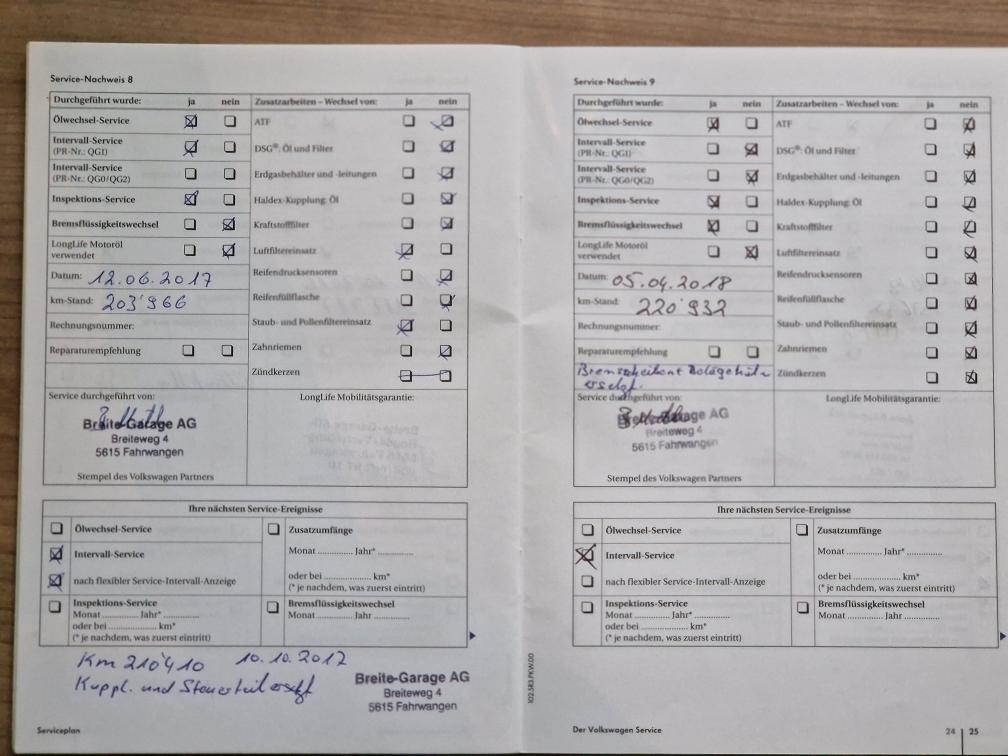 Service-Nachweis 8
Durchgeführt wurde: ja nein
Ölwechsel-Service
Intervall-Service
(PR-Nr.: QG1)
Intervall-Service
(PR-Nr.: QG0/QG2)
Inspektions-Service
Bremsflüssigkeitswechsel
LongLife Motoröl
verwendet
Datum: 12.06.2017
km-Stand: 203'966
Rechnungsnummer:
Reparaturempfehlung
Zusatzarbeiten – Wechsel von: ja nein
ATF
DSG®: Öl und Filter
Erdgasbehälter und -leitungen
Haldex-Kupplung: Öl
Kraftstofffilter
Luftfiltereinsatz
Reifendrucksensoren
Reifenfüllflasche
Staub- und Pollenfiltereinsatz
Zahnriemen
Zündkerzen
Service durchgeführt von:
Breite-Garage AG
Breiteweg 4
5615 Fahrwangen
Stempel des Volkswagen Partners
LongLife Mobilitätsgarantie:
Ihre nächsten Service-Ereignisse
Ölwechsel-Service
Intervall-Service
nach flexibler Service-Intervall-Anzeige
Inspektions-Service
Monat .......... Jahr* ..........
oder bei .................... km*
(* je nachdem, was zuerst eintritt)
Zusatzumfänge
Monat ............. Jahr* .............
oder bei .................... km*
(* je nachdem, was zuerst eintritt)
Bremsflüssigkeitswechsel
Monat .......... Jahr ..........
Km 210'410 10.10.2017
Kuppl. und Steuerteil ersetzt
Breite-Garage AG
Breiteweg 4
5615 Fahrwangen
Serviceplan
Service-Nachweis 9
Durchgeführt wurde: ja nein
Ölwechsel-Service
Intervall-Service
(PR-Nr.: QG1)
Intervall-Service
(PR-Nr.: QG0/QG2)
Inspektions-Service
Bremsflüssigkeitswechsel
LongLife Motoröl
verwendet
Datum: 05.04.2018
km-Stand: 220'932
Rechnungsnummer:
Reparaturempfehlung
ersetzt.
Zusatzarbeiten – Wechsel von: ja nein
ATF
DSG®: Öl und Filter
Erdgasbehälter und -leitungen
Haldex-Kupplung: Öl
Kraftstofffilter
Luftfiltereinsatz
Reifendrucksensoren
Reifenfüllflasche
Staub- und Pollenfiltereinsatz
Zahnriemen
Zündkerzen
Service durchgeführt von:
Breite-Garage AG
Breiteweg 4
5615 Fahrwangen
Stempel des Volkswagen Partners
LongLife Mobilitätsgarantie:
Ihre nächsten Service-Ereignisse
Ölwechsel-Service
Intervall-Service
nach flexibler Service-Intervall-Anzeige
Inspektions-Service
Monat .......... Jahr* ..........
oder bei .................... km*
(* je nachdem, was zuerst eintritt)
Zusatzumfänge
Monat ............. Jahr* .............
oder bei .................... km*
(* je nachdem, was zuerst eintritt)
Bremsflüssigkeitswechsel
Monat .......... Jahr ..........
102.5R3.PKW.00
Der Volkswagen Service
24 | 25